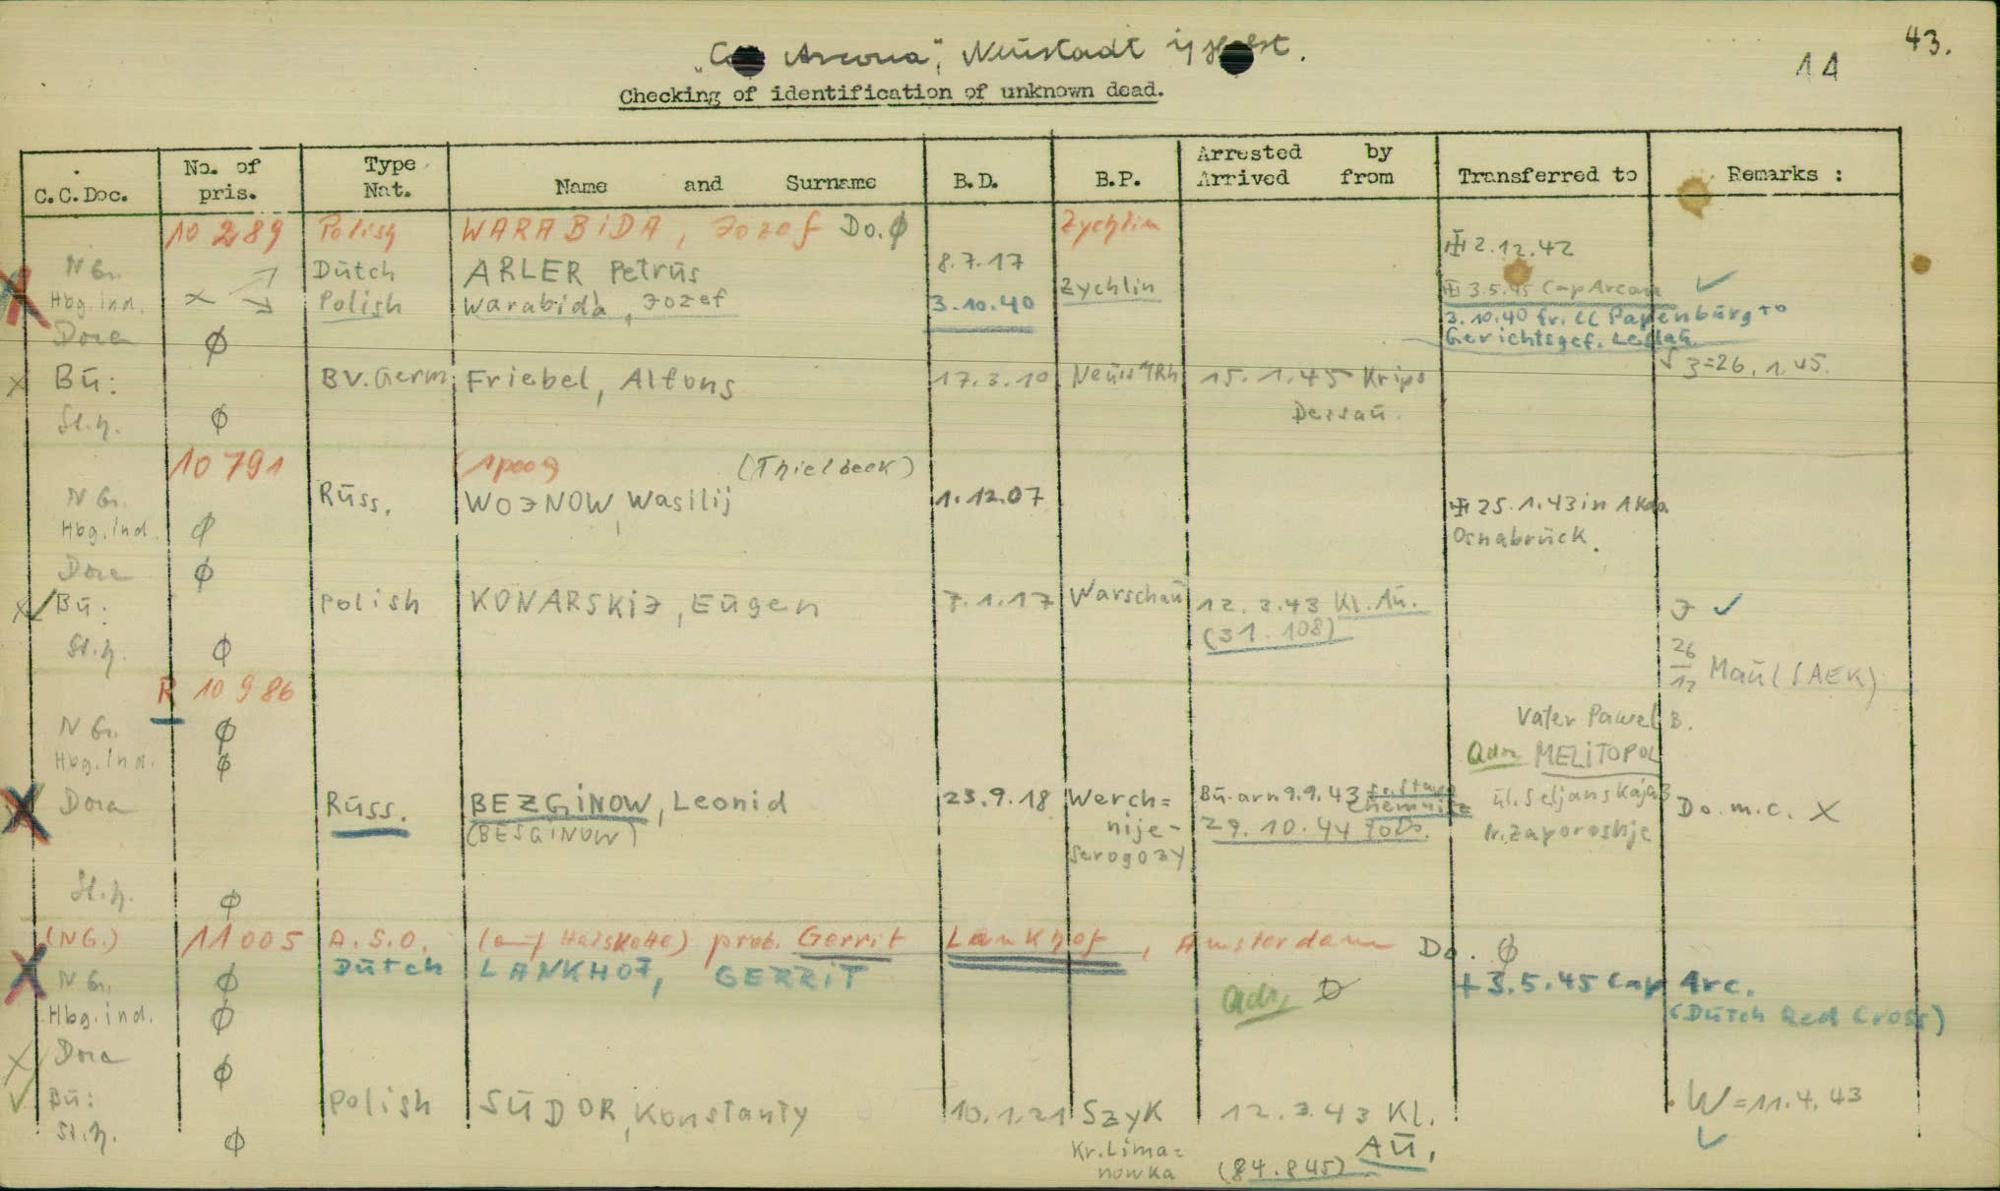 43.
„Cap Arcona", Neustadt i/Holst.
14
Checking of identification of unknown dead.
C.C.Doc. No. of pris. Type Nat. Name and Surname B.D. B.P. Arrested by Arrived from Transferred to Remarks :
10 289 Polish WARABIDA, Jozef Do. ø Zychlin
2.12.42
N Gr. Dutch ARLER Petrus 8.7.17
Hbg. ind. x Polish Warabida, Jozef 3.10.40 Zychlin 3.5.45 Cap Arcona ✓
3.10.40 fr. CC Papenburg to
Gerichtsgef. Leslau
Dora ø
x Bu: BV. Germ. Friebel, Alfons 17.3.10 Neuss/Rh 15.1.45 Kripo 3=26.1.45.
Dessau.
St.h. ø
10 791 (Thielbeck)
N Gr. Russ. WOJNOW, Wasilij 1.12.07 25.1.43 in
Hbg. ind. ø Osnabrück.
Dora ø
x ✓ Bu: Polish KONARSKIJ, Eugen 7.1.17 Warschau 12.3.43 Kl. Au. J ✓
(31.108)
St.h. ø 26/12 Maul (AEK)
R 10 986
N Gr. ø Vater Pawel B.
Hbg. ind. ø Adr. MELITOPOL
Dora Russ. BEZGINOW, Leonid 23.9.18 Werch= Bu. arr 9.9.43 Chemnitz ul. Seljanskaja 3 Do. m.c. X
(BESGINOW) nije- 29.10.44 to Do. Kr. Zaporoshje
Serogozy
St.h. ø
(NG.) 11005 A.S.O. (auf Halskette) prob. Gerrit Lankhof, Amsterdam Do. ø
N Gr. ø Dutch LANKHOF, GERRIT Adr. ø + 3.5.45 Cap Arc.
Hbg. ind. ø (Dutch Red Cross)
x Dora ø
✓ Bu: Polish SUDOR, Konstanty 10.1.21 Szyk 12.3.43 Kl. W=11.4.43
St.h. ø Kr. Lima= Au. ✓
nowka (84.845)